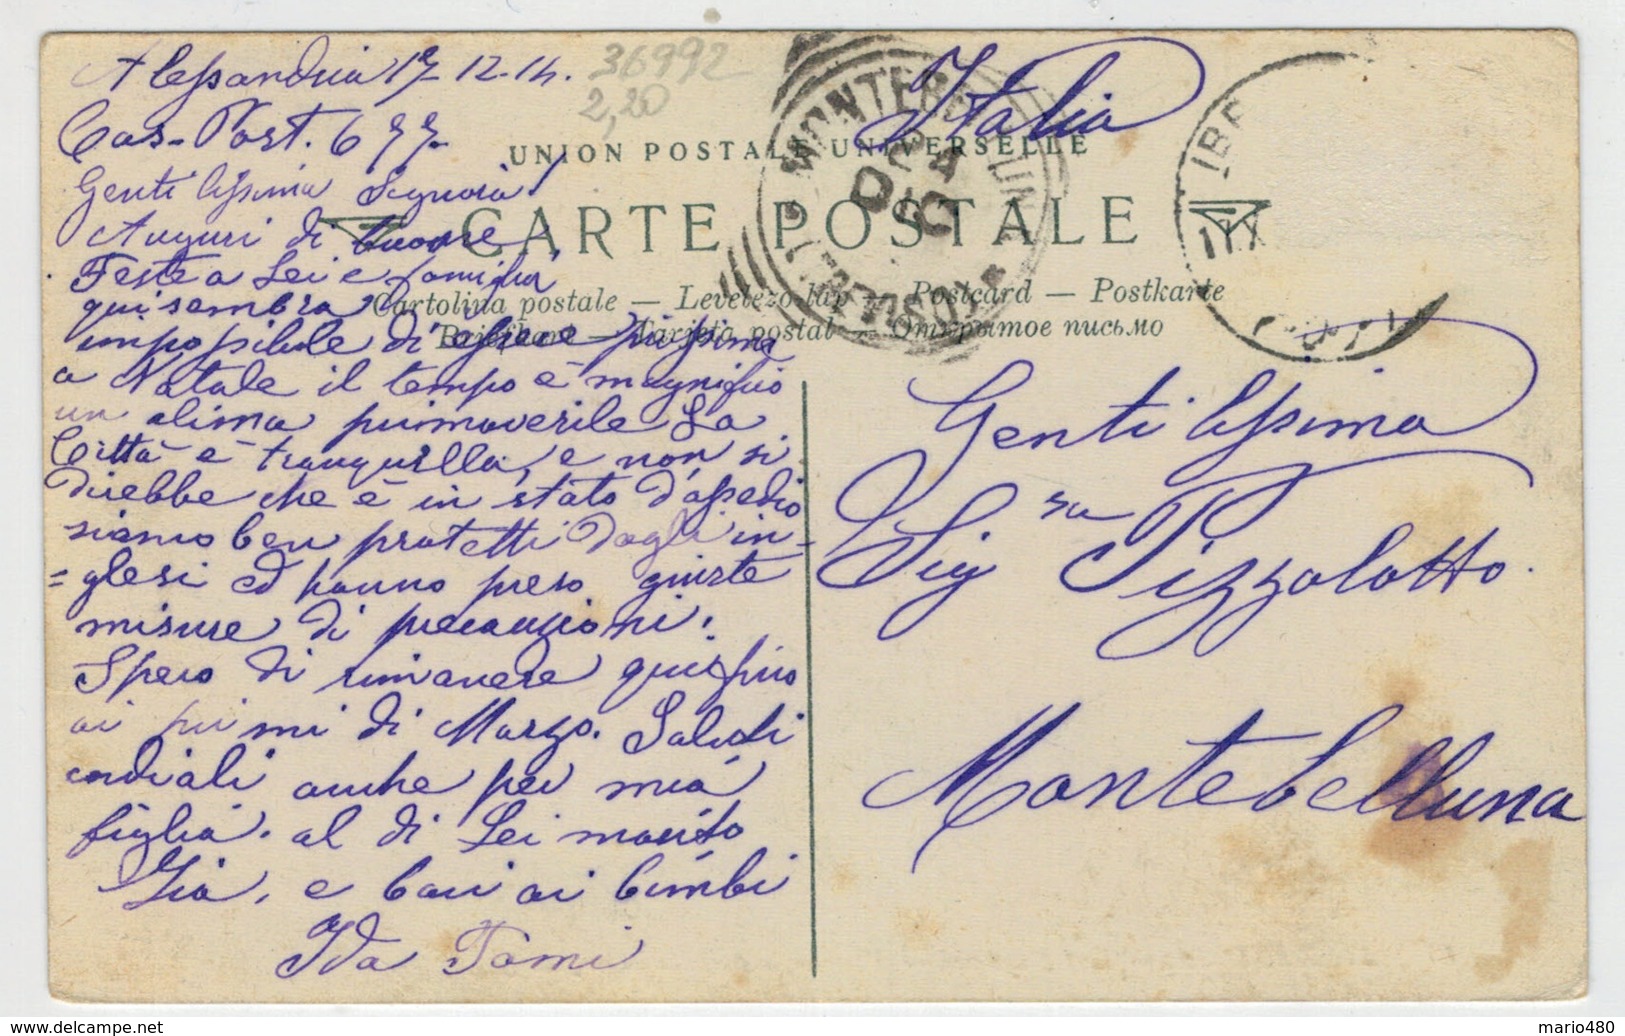 Alessandria 17-12-14.
Cas-Post. 677-
Gentilissima Signora!
Auguri di buone
Feste a Lei e famiglia
qui sembra
impossibile di essere prossima
a Natale il tempo è magnifico
un clima primaverile La
Città è tranquilla, e non si
direbbe che è in stato d'assedio
siamo ben protetti dagli in-
=glesi ed hanno preso giuste
misure di precauzioni.
Spero di rimanere qui sino
ai primi di Marzo. Saluti
cordiali anche per mia
figlia. al di Lei marito
Zia, e baci ai bimbi
Ida Tomi
36992
2,20
Italia
UNION POSTALE UNIVERSELLE
CARTE POSTALE
Cartolina postale — Levelezo-lap — Postcard — Postkarte
Briefkaart — Tarjeta postal — Открытое письмо
MONTEBELLUNA
Gentilissima
Sig.ra Pizzolotto.
Montebelluna
mario480